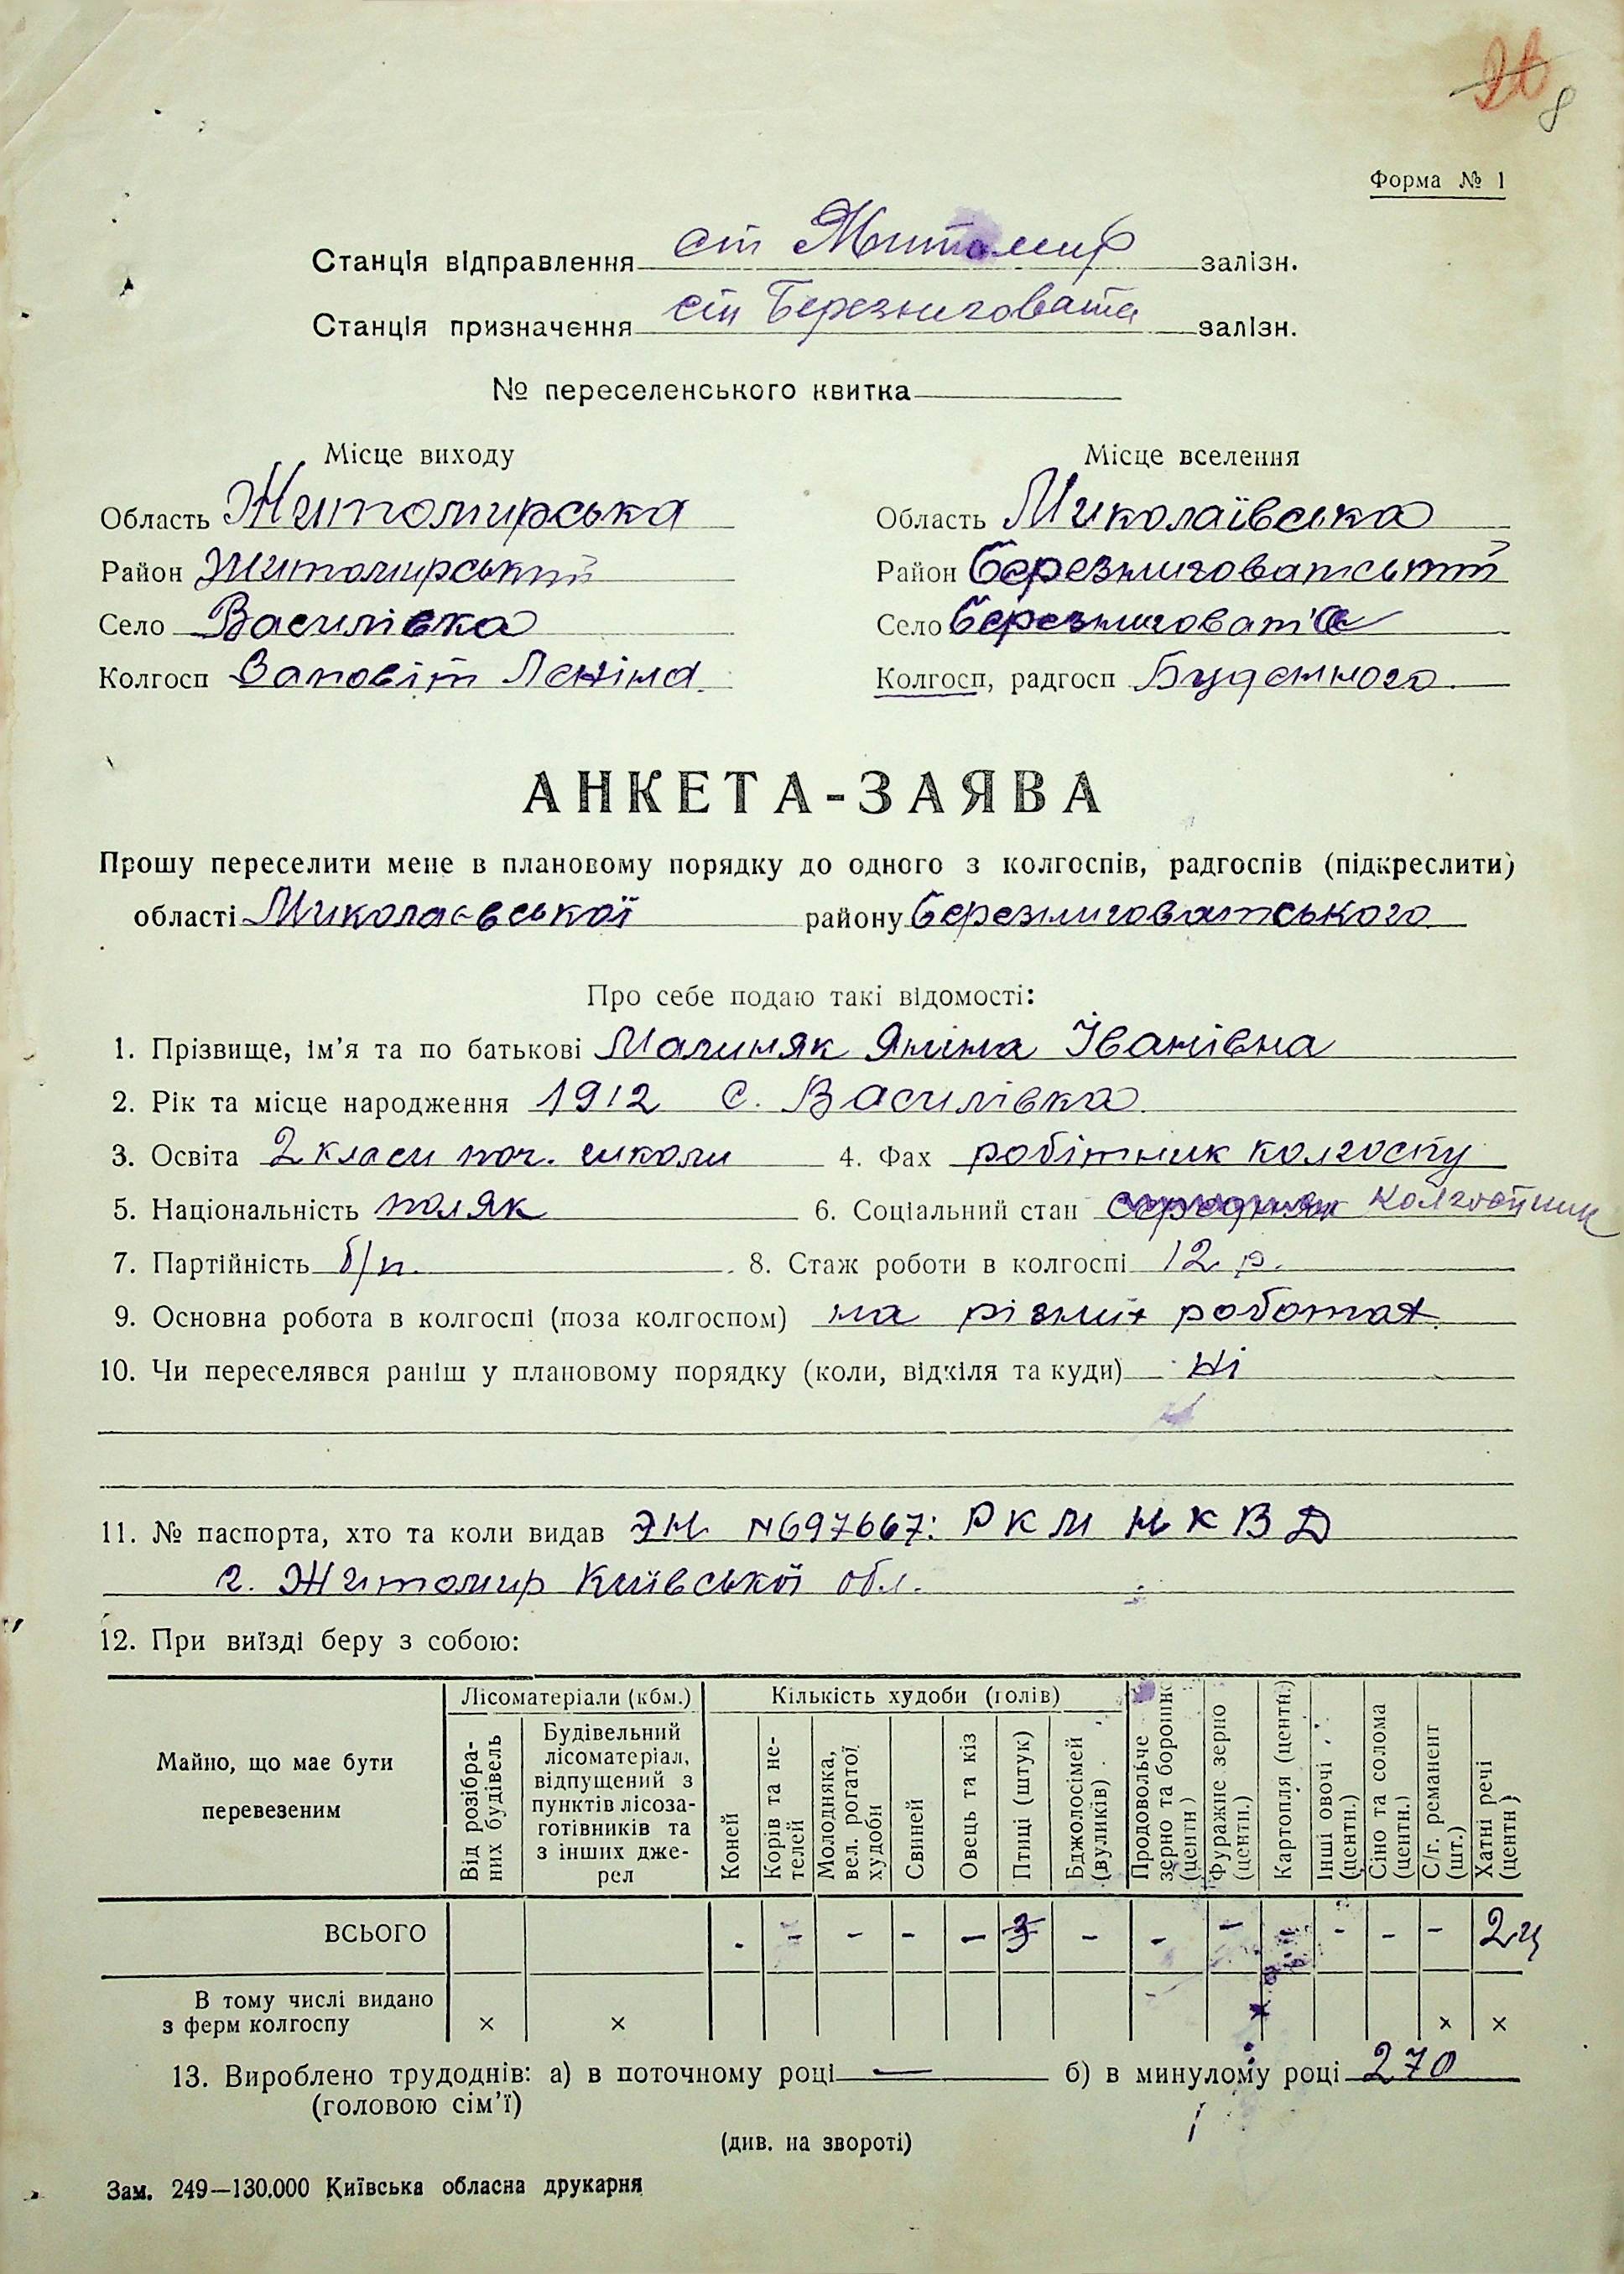 8
Форма № 1
Станція відправлення ст Житомир залізн.
Станція призначення ст Березниговата залізн.
№ переселенського квитка
Місце виходу
Місце вселення
Область Житомирська
Область Миколаївська
Район Житомирський
Район Березниговатський
Село Василівка
Село Березниговата
Колгосп Заповіт Леніна
Колгосп, радгосп Будьонного
АНКЕТА-ЗАЯВА
Прошу переселити мене в плановому порядку до одного з колгоспів, радгоспів (підкреслити)
області Миколаєвської району Березниговатського
Про себе подаю такі відомості:
1. Прізвище, ім'я та по батькові Малиняк Яніна Іванівна
2. Рік та місце народження 1912 с. Василівка
3. Освіта 2 класи поч. школи 4. Фах робітник колгоспу
5. Національність поляк 6. Соціальний стан середняк колгоспник
7. Партійність б/п. 8. Стаж роботи в колгоспі 12 р.
9. Основна робота в колгоспі (поза колгоспом) на різних роботах
10. Чи переселявся раніш у плановому порядку (коли, відкіля та куди) Ні
11. № паспорта, хто та коли видав ЭМ N697667: РКМ НКВД
г. Житомир Київської обл.
12. При виїзді беру з собою:
Майно, що має бути перевезеним
Лісоматеріали (кбм.)
Кількість худоби (голів)
Від розібраних будівель
Будівельний лісоматеріал, відпущений з пунктів лісозаготівників та з інших джерел
Коней
Корів та нетелей
Молодняка, вел. рогатої худоби
Свиней
Овець та кіз
Птиці (штук)
Бджолосімей (вуликів)
Продовольче зерно та борошно (центн)
Фуражне зерно (центн.)
Картопля (центн.)
Інші овочі (центн.)
Сіно та солома (центн.)
С/г. реманент (шт.)
Хатні речі (центн)
ВСЬОГО - - - - - 3 - - - - - - - 2ц
В тому числі видано
з ферм колгоспу × × × ×
13. Вироблено трудоднів: а) в поточному році — б) в минулому році 270
(головою сім'ї)
(див. на звороті)
Зам. 249—130.000 Київська обласна друкарня